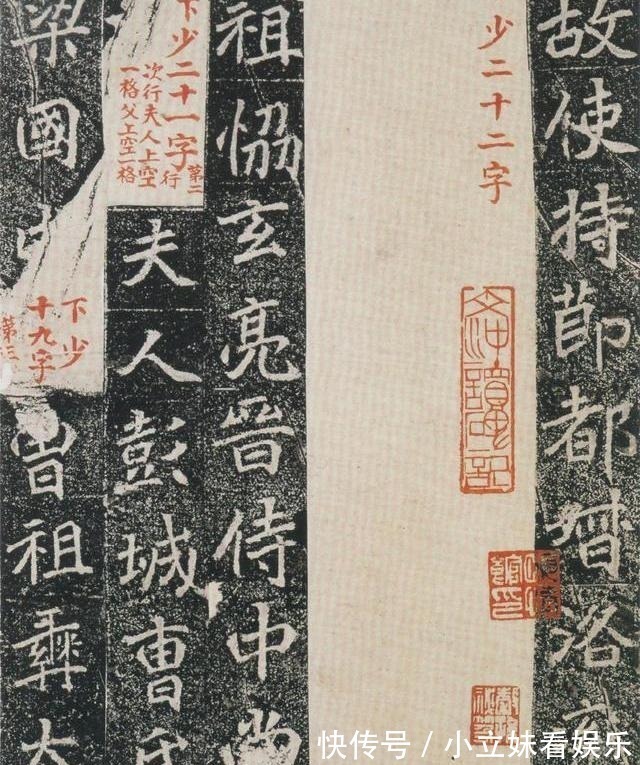 故使持節都督洛
少二十二字
祖恊玄亮晉侍中尚
下少二十一字
第二行
次行夫人上空
一格父上空一格
夫人彭城曹氏
梁國
下少
十九字
第三
曾祖彝大
快传号 / 小立妹看娱乐